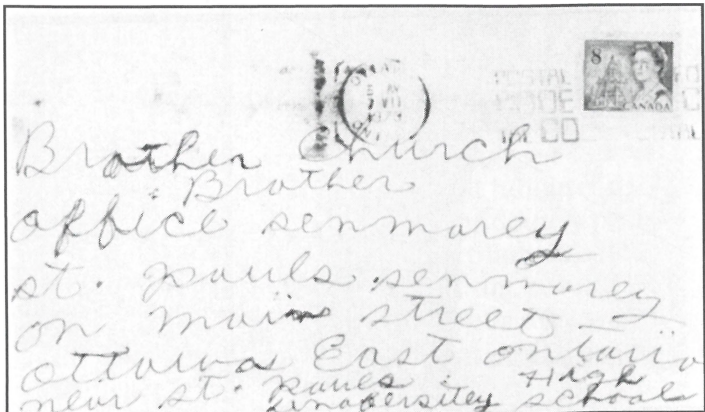 8
CANADA
POSTAL
CODE
Brother Church
Brother
office senmarey
st. pauls senmarey
on main street
ottawa East ontario
near st. pauls High
schools